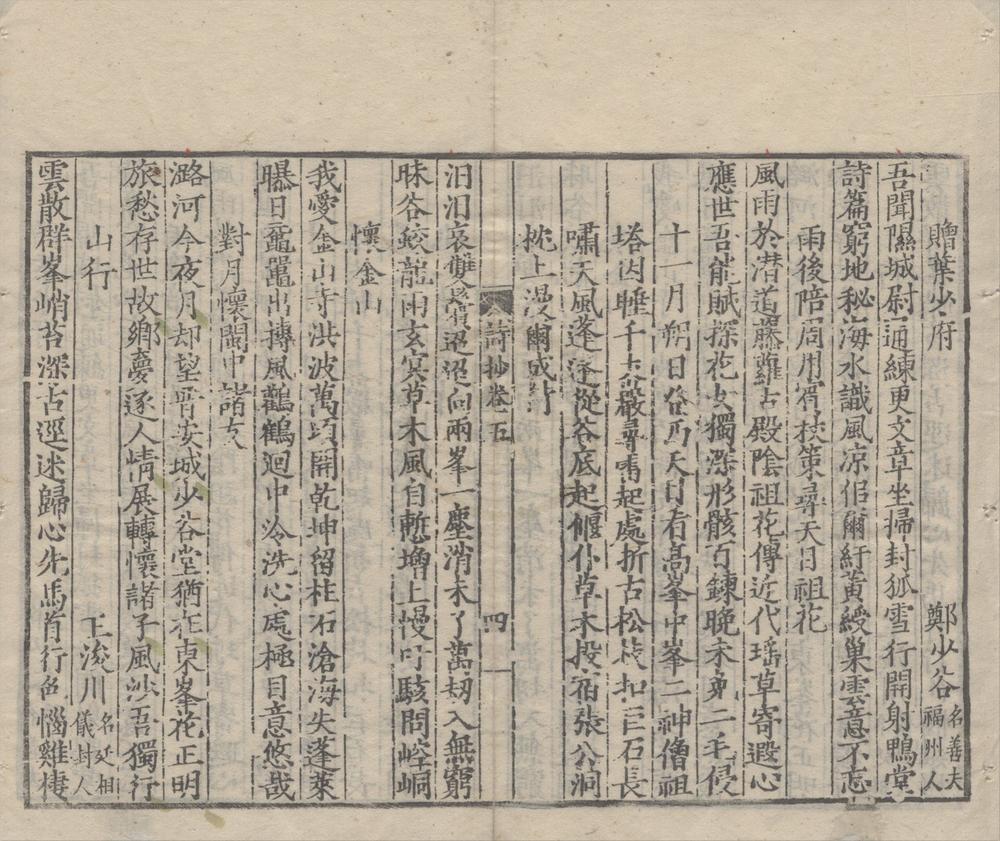 贈葉少府 鄭少谷 名善夫福州人
吾聞隰城尉通練更文章坐掃封狐雪行開射鴨堂
詩篇窮地秘海水識風凉侶爾紆黃綬巢雲意不忘
雨後陪周用賓杖策尋天目祖花
風雨於潜道藤蘿古殿陰祖花傳近代瑶草寄遐心
應世吾能賦探花女獨深形骸百鍊晚未免二毛侵
十一月朔日登西天目看高峯中峯二神僧祖
塔因睡千丈巖尋鳴起處折古松枝扣巨石長
嘯天風蓬逢從谷底起偃仆草木投宿張公洞
枕上漫爾成詩
詩抄卷五 四
汩汩哀雙鬢迢迢向兩峯一塵消未了萬刼入無窮
昧谷蛟龍雨玄冥草木風自慙壇上慢吁駭問崆峒
懷金山
我愛金山寺洪波萬頃開乾坤留柱石滄海失蓬萊
曝日黿鼉出摶風鸛鶴迴中冷洗心處極目意悠哉
對月懷閩中諸友
潞河今夜月却望晋安城少谷堂猶在東峯花正明
旅愁存世故鄉夢逐人情展轉懷諸子風沙吾獨行
山行 王浚川 名廷相儀封人
雲散群峯峭苔深古逕迷歸心先馬首行色惱雞棲